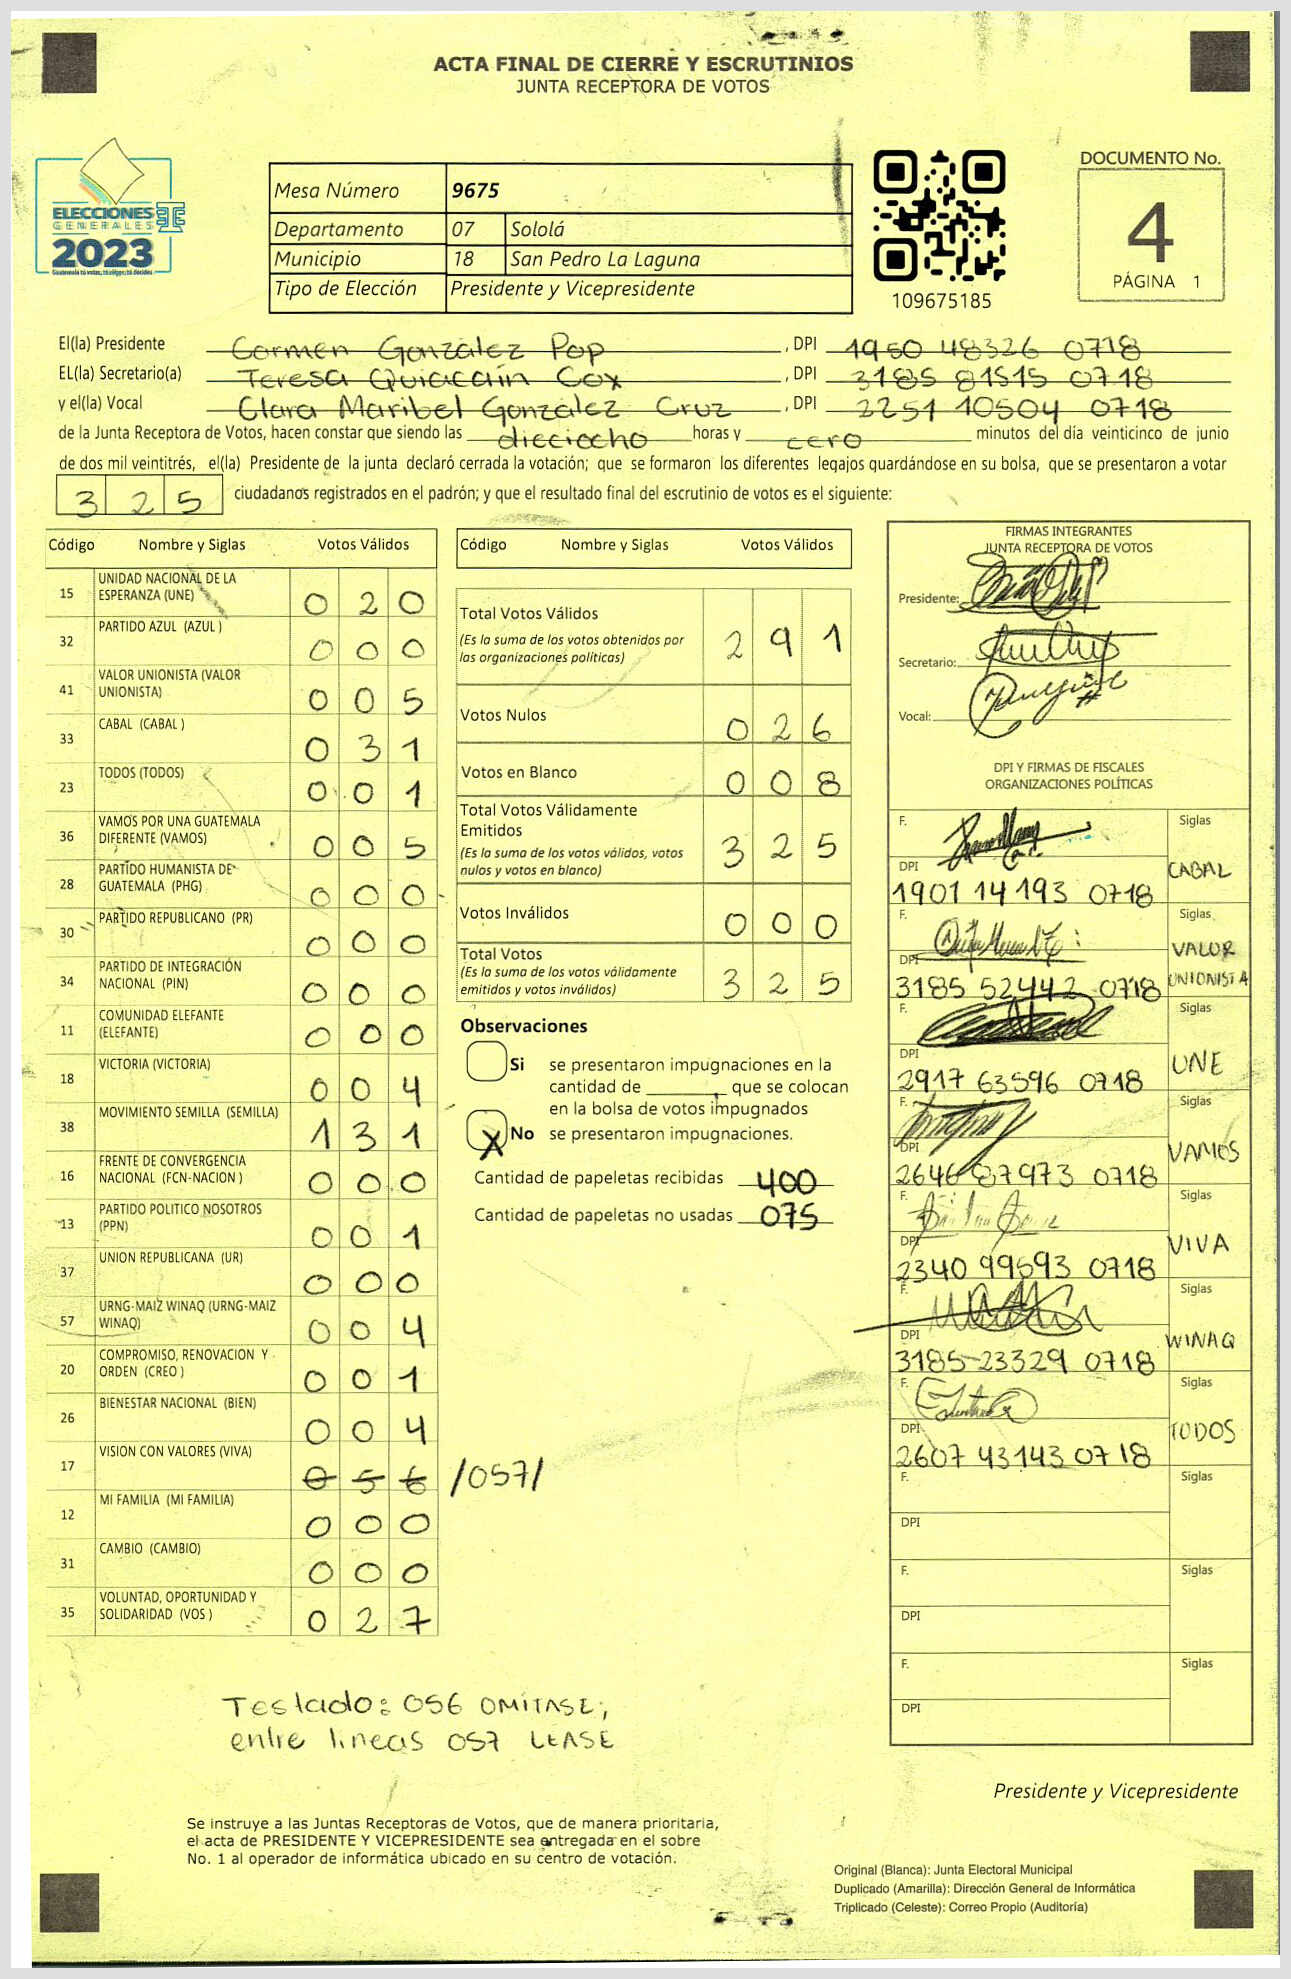 ACTA FINAL DE CIERRE Y ESCRUTINIOS
JUNTA RECEPTORA DE VOTOS
ELECCIONES
GENERALES
2023
Guatemala tú votas, tú eliges, tú decides
Mesa Número 9675
Departamento 07 Sololá
Municipio 18 San Pedro La Laguna
Tipo de Elección Presidente y Vicepresidente
109675185
DOCUMENTO No.
4
PÁGINA 1
El(la) Presidente Carmen González Pop, DPI 1950 48326 0718
EL(la) Secretario(a) Teresa Quiacaín Cox, DPI 3185 81515 0718
y el(la) Vocal Clara Maribel González Cruz, DPI 2251 10504 0718
de la Junta Receptora de Votos, hacen constar que siendo las dieciocho horas y cero minutos del día veinticinco de junio
de dos mil veintitrés, el(la) Presidente de la junta declaró cerrada la votación; que se formaron los diferentes legajos guardándose en su bolsa, que se presentaron a votar
325 ciudadanos registrados en el padrón; y que el resultado final del escrutinio de votos es el siguiente:
Código Nombre y Siglas Votos Válidos
15 UNIDAD NACIONAL DE LA ESPERANZA (UNE) 0 2 0
32 PARTIDO AZUL (AZUL ) 0 0 0
41 VALOR UNIONISTA (VALOR UNIONISTA) 0 0 5
33 CABAL (CABAL ) 0 3 1
23 TODOS (TODOS) 0 0 1
36 VAMOS POR UNA GUATEMALA DIFERENTE (VAMOS) 0 0 5
28 PARTIDO HUMANISTA DE GUATEMALA (PHG) 0 0 0
30 PARTIDO REPUBLICANO (PR) 0 0 0
34 PARTIDO DE INTEGRACIÓN NACIONAL (PIN) 0 0 0
11 COMUNIDAD ELEFANTE (ELEFANTE) 0 0 0
18 VICTORIA (VICTORIA) 0 0 4
38 MOVIMIENTO SEMILLA (SEMILLA) 1 3 1
16 FRENTE DE CONVERGENCIA NACIONAL (FCN-NACION ) 0 0 0
13 PARTIDO POLITICO NOSOTROS (PPN) 0 0 1
37 UNION REPUBLICANA (UR) 0 0 0
57 URNG-MAIZ WINAQ (URNG-MAIZ WINAQ) 0 0 4
20 COMPROMISO, RENOVACION Y ORDEN (CREO ) 0 0 1
26 BIENESTAR NACIONAL (BIEN) 0 0 4
17 VISION CON VALORES (VIVA) 0 5 6 /057/
12 MI FAMILIA (MI FAMILIA) 0 0 0
31 CAMBIO (CAMBIO) 0 0 0
35 VOLUNTAD, OPORTUNIDAD Y SOLIDARIDAD (VOS ) 0 2 7
Código Nombre y Siglas Votos Válidos
Total Votos Válidos 2 9 1
(Es la suma de los votos obtenidos por
las organizaciones políticas)
Votos Nulos 0 2 6
Votos en Blanco 0 0 8
Total Votos Válidamente
Emitidos 3 2 5
(Es la suma de los votos válidos, votos
nulos y votos en blanco)
Votos Inválidos 0 0 0
Total Votos 3 2 5
(Es la suma de los votos válidamente
emitidos y votos inválidos)
Observaciones
Si se presentaron impugnaciones en la
cantidad de ______ que se colocan
en la bolsa de votos impugnados
X No se presentaron impugnaciones.
Cantidad de papeletas recibidas 400
Cantidad de papeletas no usadas 075
FIRMAS INTEGRANTES
JUNTA RECEPTORA DE VOTOS
Presidente:
Secretario:
Vocal:
DPI Y FIRMAS DE FISCALES
ORGANIZACIONES POLÍTICAS
F. Siglas
DPI CABAL
1901 14193 0718
F. Siglas
DPI VALOR
3185 52442 0718 UNIONISTA
F. Siglas
DPI UNE
2917 63596 0718
F. Siglas
DPI VAMOS
2646 87973 0718
F. Siglas
DPI VIVA
2340 99593 0718
F. Siglas
DPI WINAQ
3185-23329 0718
F. Siglas
DPI TODOS
2607 43143 0718
F. Siglas
DPI
F. Siglas
DPI
F. Siglas
DPI
Testado: 056 OMITASE;
entre lineas 057 LEASE
Presidente y Vicepresidente
Se instruye a las Juntas Receptoras de Votos, que de manera prioritaria,
el acta de PRESIDENTE Y VICEPRESIDENTE sea entregada en el sobre
No. 1 al operador de informática ubicado en su centro de votación.
Original (Blanca): Junta Electoral Municipal
Duplicado (Amarilla): Dirección General de Informática
Triplicado (Celeste): Correo Propio (Auditoría)